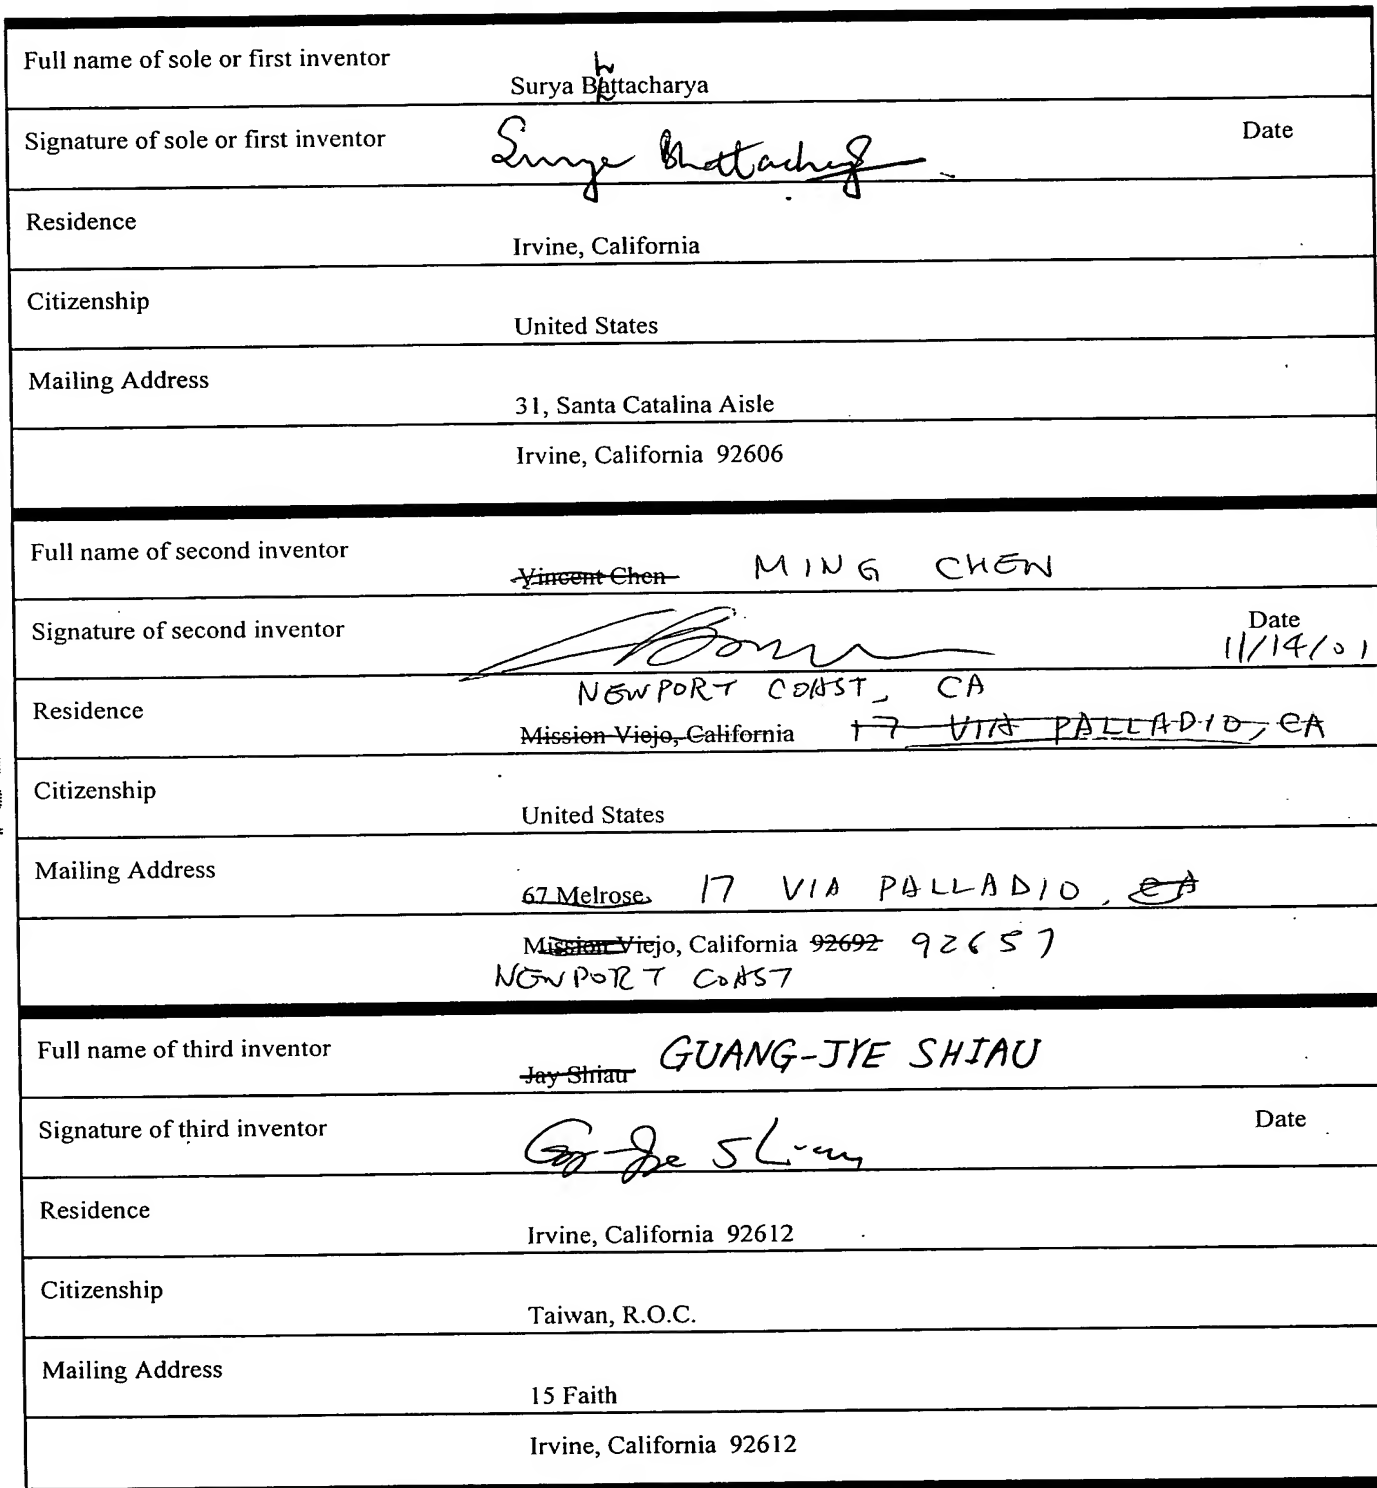 Full name of sole or first inventor
h
Surya Battacharya
Signature of sole or first inventor Surya Bhattacharya Date
Residence
Irvine, California
Citizenship
United States
Mailing Address
31, Santa Catalina Aisle
Irvine, California 92606
Full name of second inventor
Vincent Chen MING CHEN
Signature of second inventor Date
11/14/01
NEWPORT COAST, CA
Residence
Mission Viejo, California 17 VIA PALLADIO, CA
Citizenship
United States
Mailing Address
67 Melrose 17 VIA PALLADIO, CA
Mission Viejo, California 92692 92657
NEWPORT COAST
Full name of third inventor
Jay Shiau GUANG-JYE SHIAU
Signature of third inventor Date
Residence
Irvine, California 92612
Citizenship
Taiwan, R.O.C.
Mailing Address
15 Faith
Irvine, California 92612